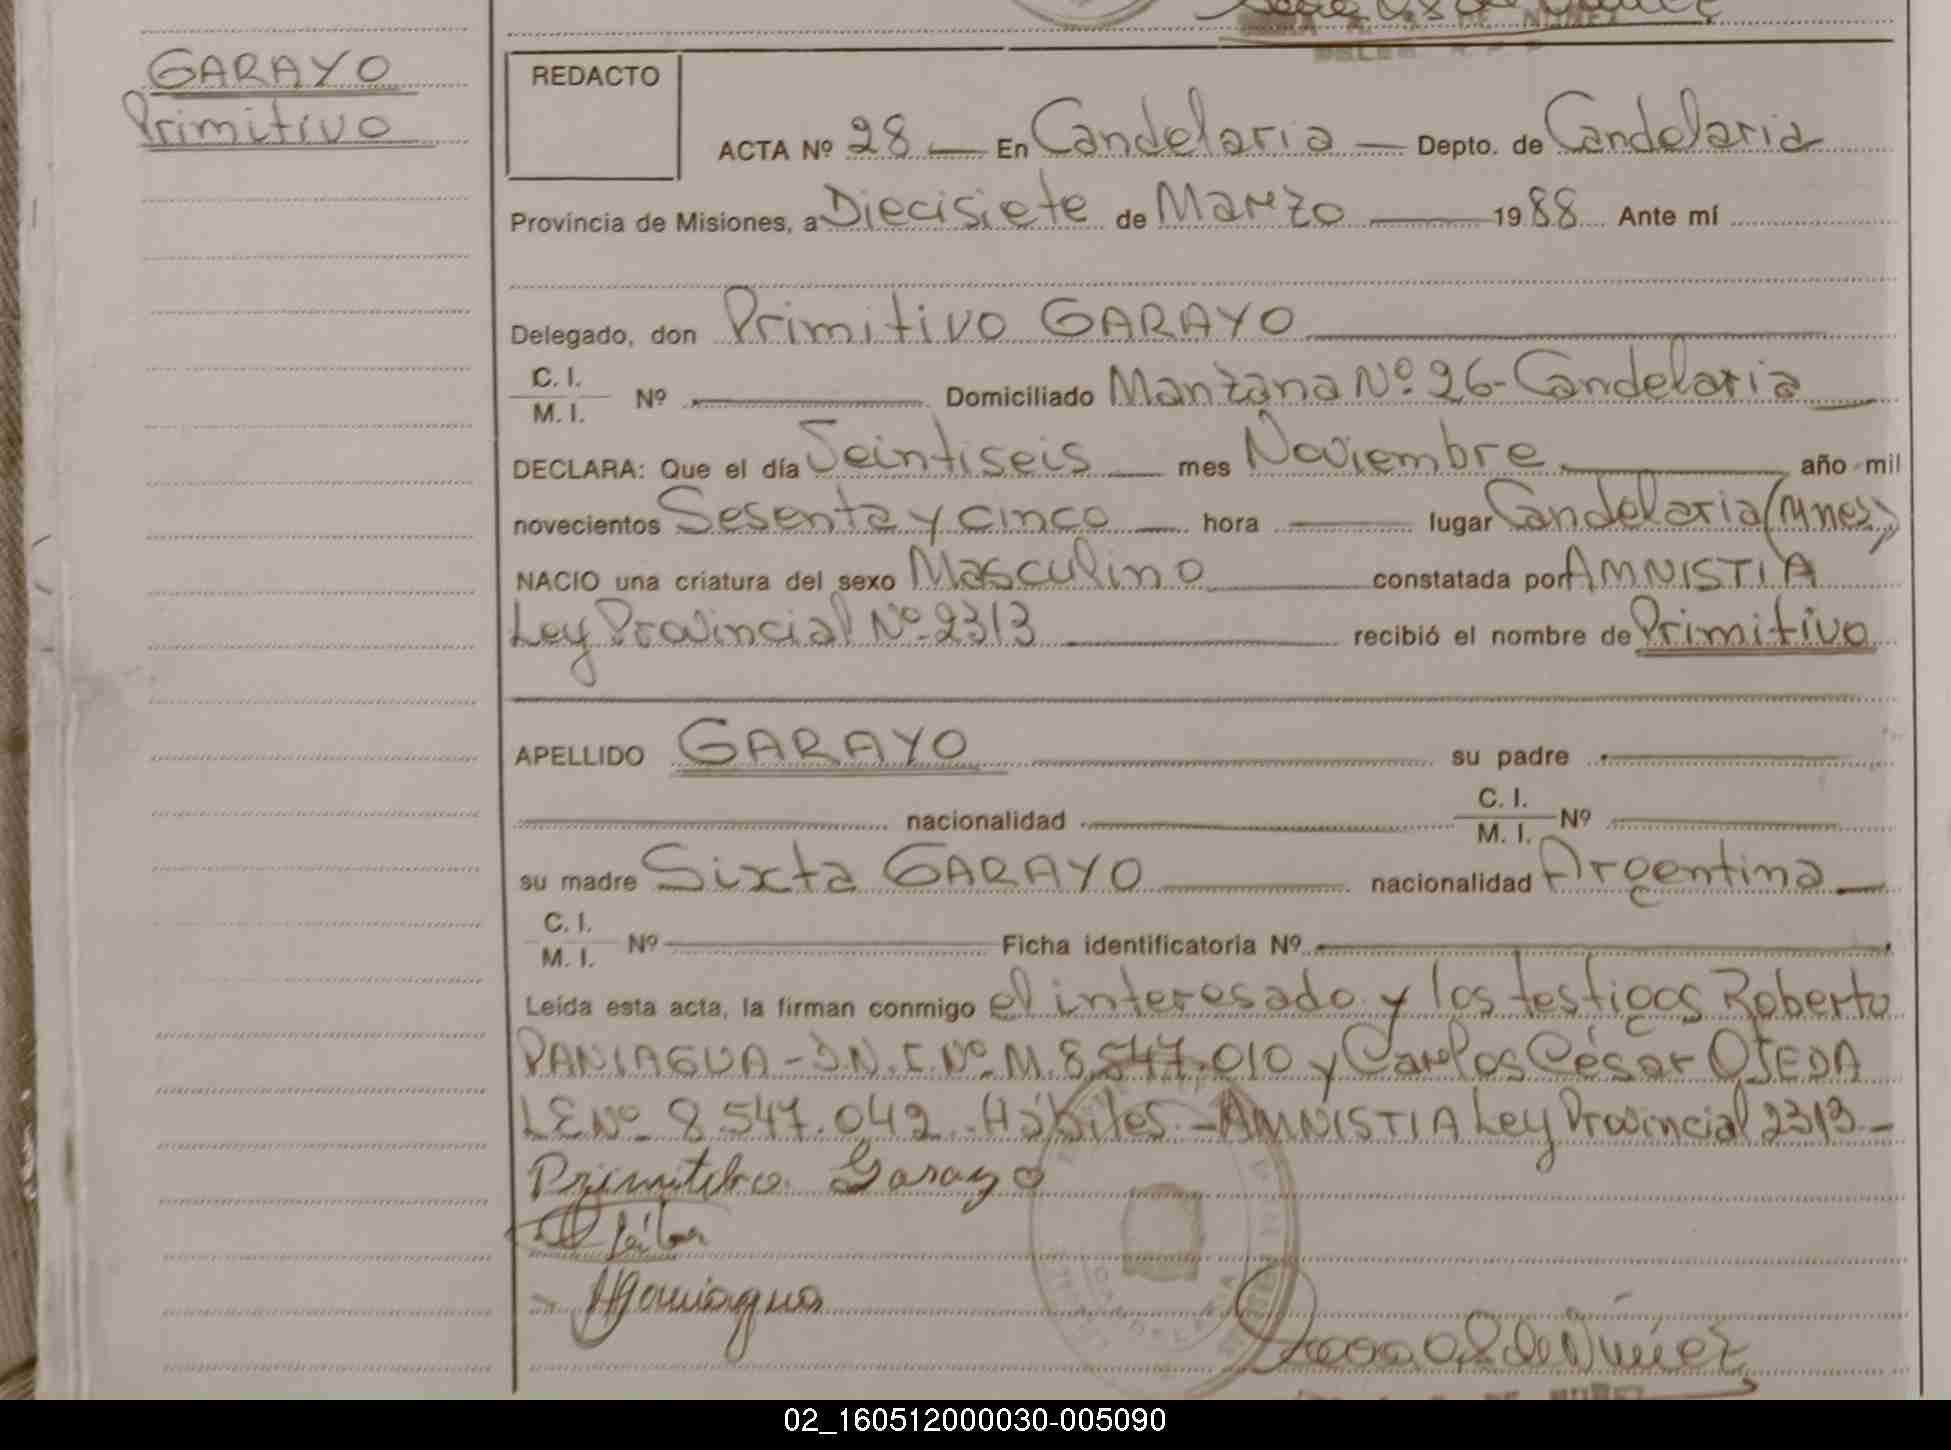 GARAYO
Primitivo
REDACTO
ACTA Nº 28 — En Candelaria — Depto. de Candelaria
Provincia de Misiones, a Diecisiete de Marzo — 1988 Ante mí
Delegado, don Primitivo GARAYO
C. I.
M. I. Nº — Domiciliado Manzana Nº 26 - Candelaria —
DECLARA: Que el día Veintiseis — mes Noviembre — año mil
novecientos Sesenta y cinco — hora — lugar Candelaria (Mnes)
NACIO una criatura del sexo Masculino — constatada por AMNISTIA
Ley Provincial Nº 2313 — recibió el nombre de Primitivo
APELLIDO GARAYO — su padre —
— nacionalidad — C. I.
M. I. Nº —
su madre Sixta GARAYO — nacionalidad Argentina —
C. I.
M. I. Nº — Ficha identificatoria Nº —
Leída esta acta, la firman conmigo el interesado y los testigos Roberto
PANIAGUA - D.N.I. Nº M. 8.547.010 y Carlos César OJEDA
LE Nº 8.547.042. Hábiles. - AMNISTIA Ley Provincial 2313 -
Garayo
02_160512000030-005090